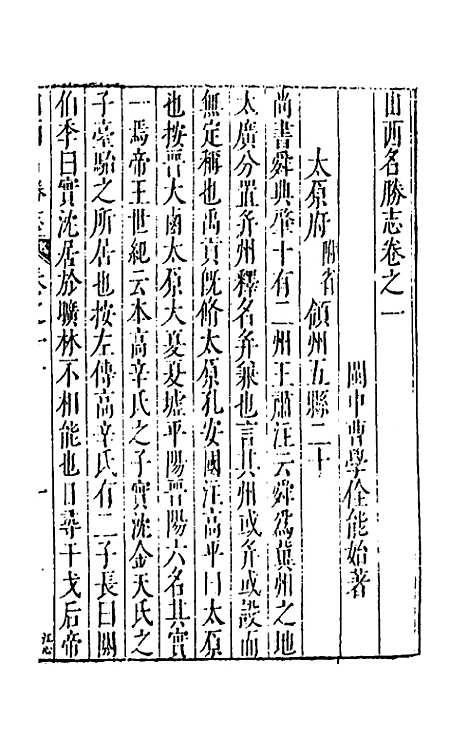 山西名勝志卷之一
閩中曹學佺能始著
太原府附省領州五縣二十
尚書舜典肇十有二州王肅注云舜爲冀州之地
太廣分置并州釋名并兼也言其州或并或設而
無定稱也禹貢旣脩太原孔安國注高平曰太原
也按晉大鹵太原大夏夏墟平陽晉陽六名其實
一焉帝王世紀云本高辛氏之子實沈金天氏之
子臺駘之所居也按左傳高辛氏有二子長曰閼
伯季曰實沈居於曠林不相能也日尋干戈后帝